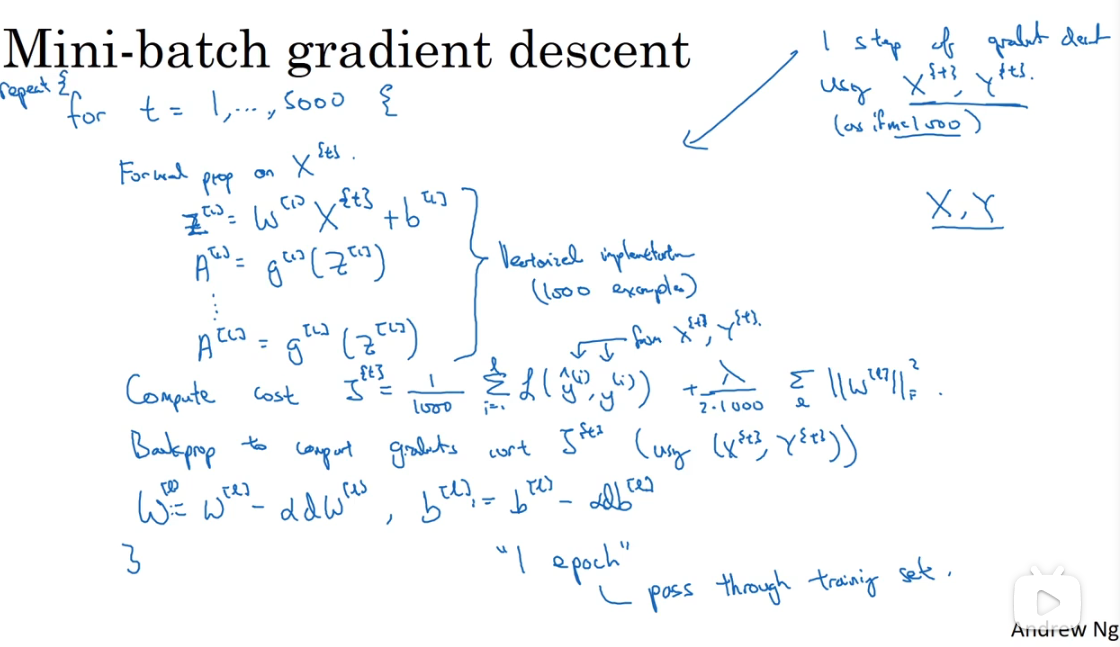 Mini-batch gradient descent
repeat {
for t = 1, ..., 5000 {
1 step of gradient descent
using X^{t}, Y^{t}.
(as if m=1000)
X, Y
Forward prop on X^{t}.
Z^[1] = W^[1] X^{t} + b^[1]
A^[1] = g^[1](Z^[1])
⋮
A^[L] = g^[L](Z^[L])
Vectorized implementation
(1000 examples)
from X^{t}, Y^{t}.
Compute cost J^{t} = 1/1000 Σ_{i=1}^{l} L(ŷ^(i), y^(i)) + λ/(2·1000) Σ_l ||W^[l]||_F^2.
Backprop to compute gradients wrt J^{t} (using (X^{t}, Y^{t}))
W^[l] := W^[l] - αdW^[l], b^[l] := b^[l] - αdb^[l]
}
"1 epoch"
pass through training set.
Andrew Ng